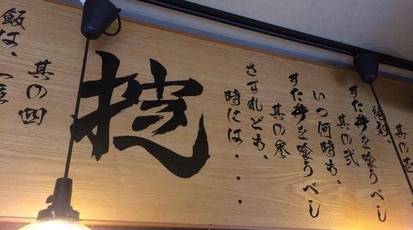 其の壱
絶対、
すた丼を喰うべし
其の弐
いつ何時も、
すた丼を喰うべし
其の参
さすれども、
時には・・・
掟
其の四
飯は、